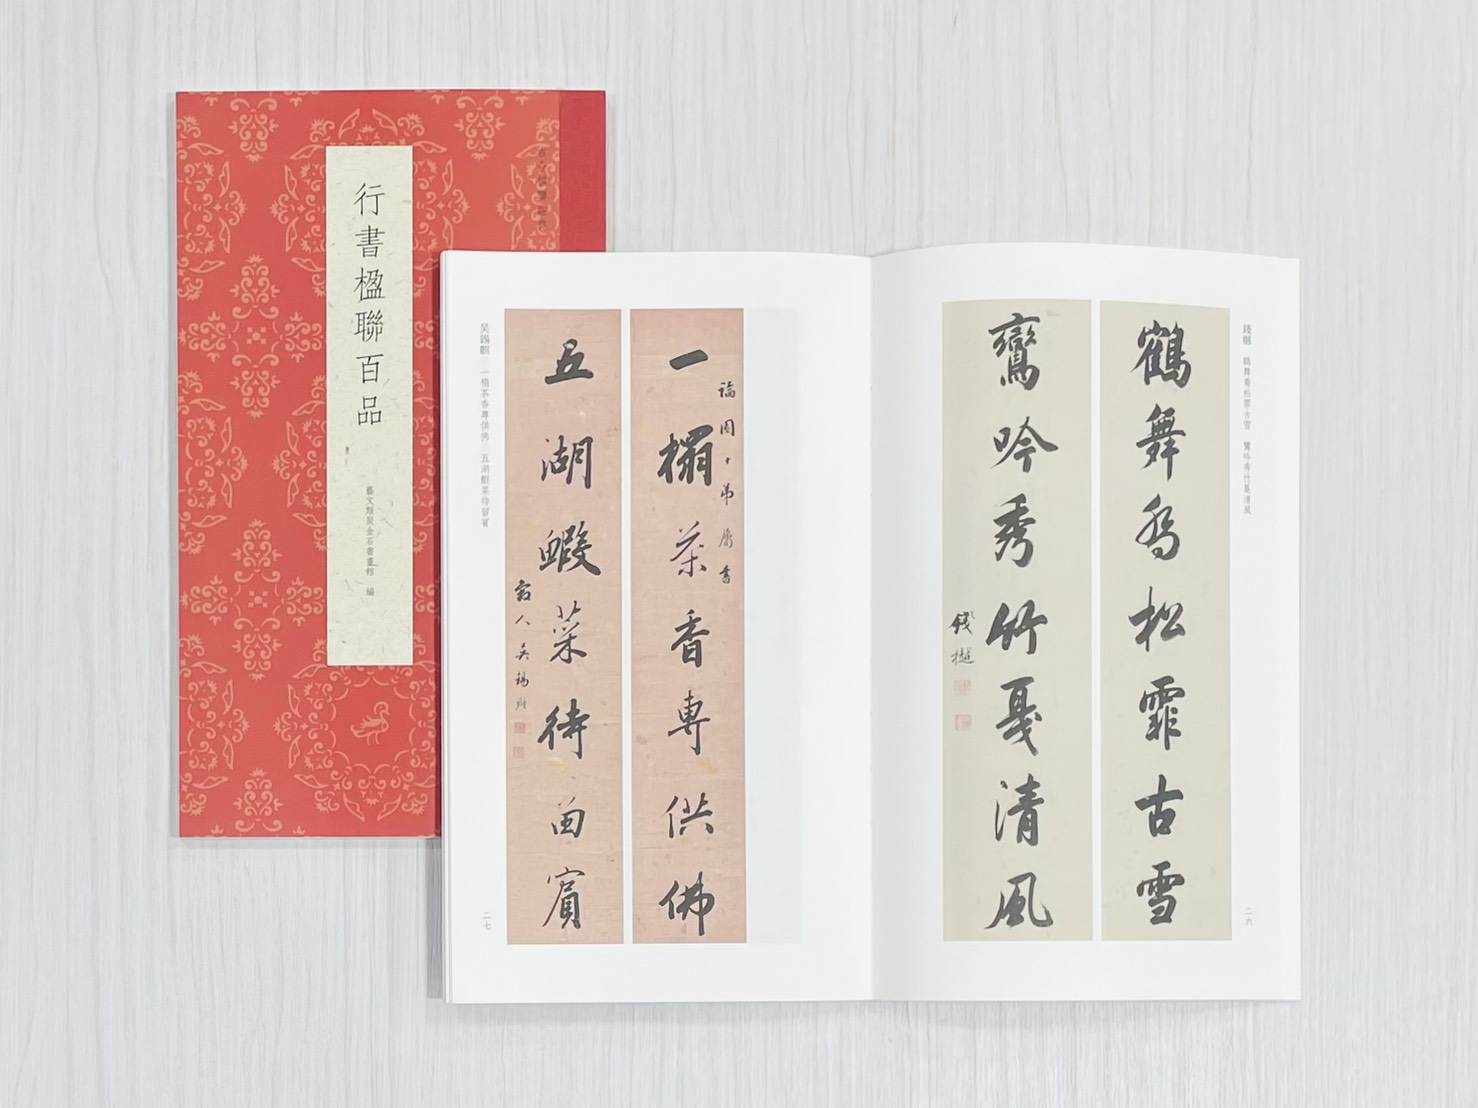 行書楹聯百品
藝文類聚金石書畫館 編
錢樾 鶴舞喬松霏古雪 鸞吟秀竹戛清風
鶴舞喬松霏古雪
鸞吟秀竹戛清風
錢樾
二六
一榻茶香專供佛
五湖鰕菜待留賓
穀人吳錫麒
吳錫麒 一榻茶香專供佛 五湖鰕菜待留賓
二七